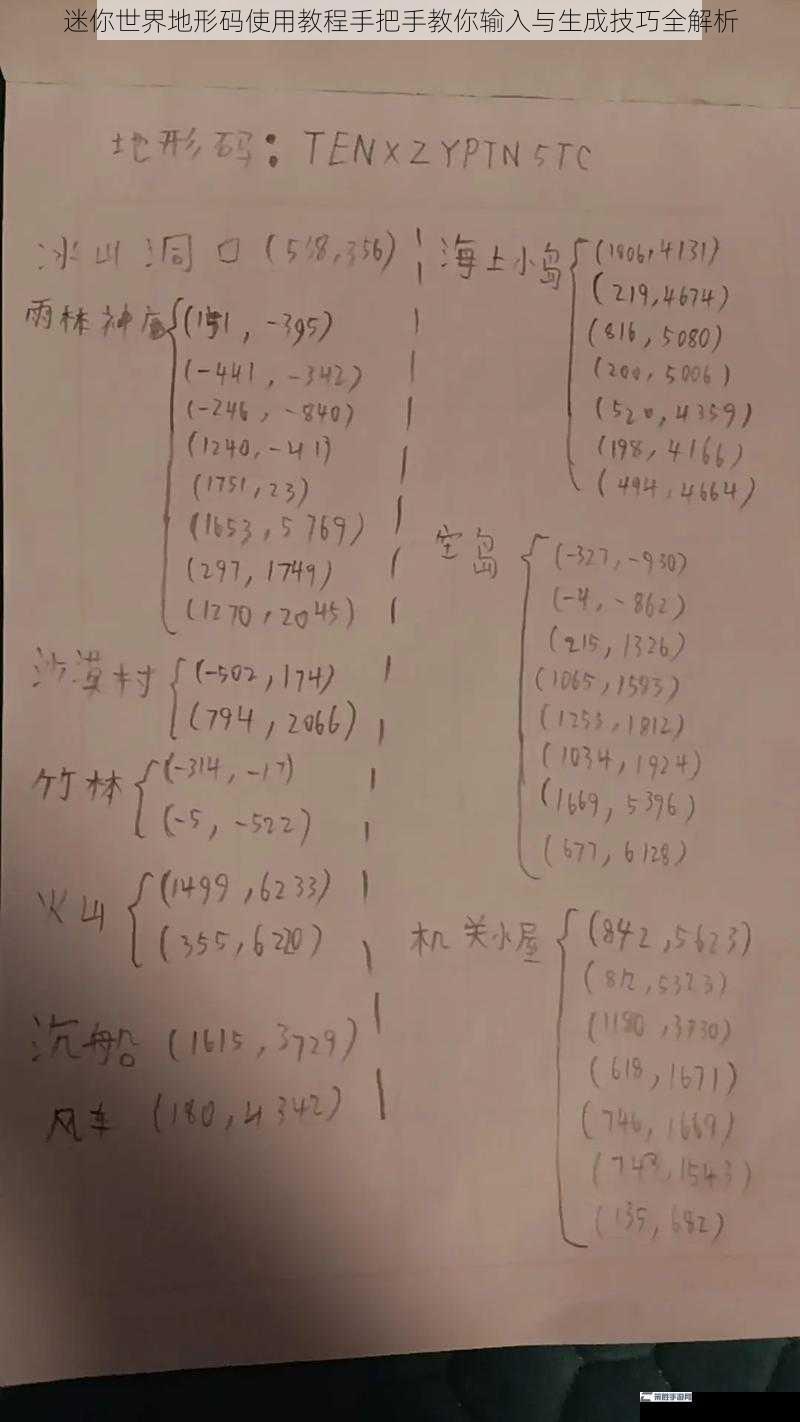 迷你世界地形码使用教程手把手教你输入与生成技巧全解析
地形码：TENXZYPTN5TC
冰山洞口(518,356)
雨林神庙(151,-395)
(-441,-342)
(-246,-840)
(1240,-41)
(1751,23)
(1653,5769)
(297,1749)
(1270,2045)
沙漠村(-502,174)
(794,2066)
竹林(-314,-17)
(-5,-522)
火山(1499,6233)
(355,6220)
沉船(1615,3729)
风车(180,4342)
海上小岛(1806,4131)
(219,4674)
(816,5080)
(200,5006)
(520,4359)
(198,4166)
(494,4664)
空岛(-327,-930)
(-4,-862)
(215,1326)
(1065,1593)
(1253,1812)
(1034,1924)
(1669,5396)
(677,6128)
机关小屋(842,5623)
(812,5323)
(1180,3730)
(618,1671)
(746,1669)
(743,1543)
(135,682)